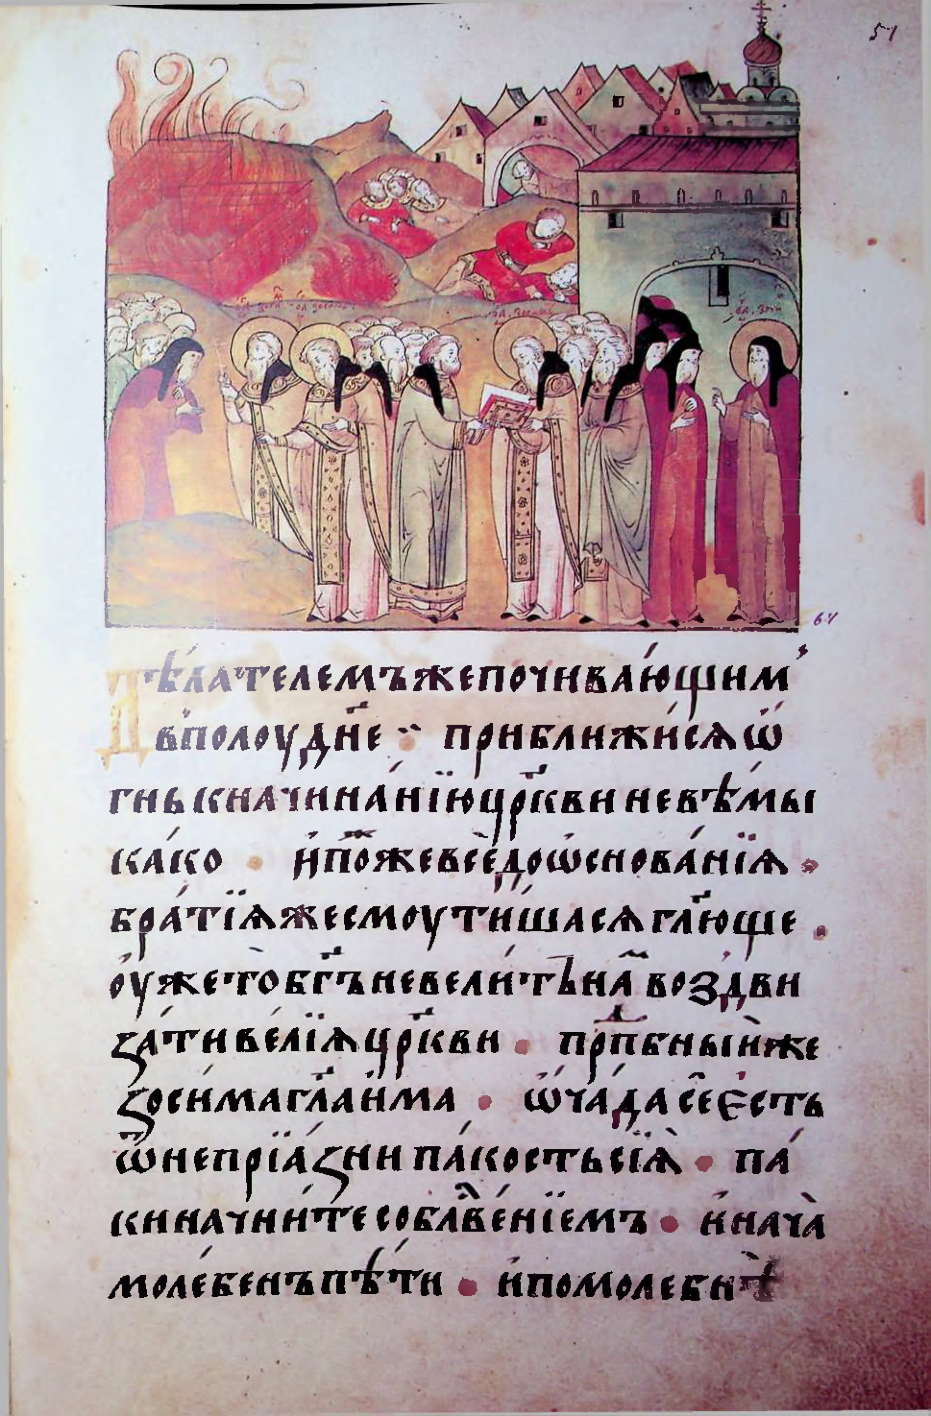 51
67
Дѣлателемъжепочива́ющим̾
в̾полоудн҃е · приближи́сѧѿ
гнькначина́нїюцр҃квиневѣ́мы
ка́ко · и҆по́жевсѐдоѡ҆снова́нїѧ ·
бра́тїѧжесмоути́шасѧгл҃юще ·
оу҆жето̀бг҃ъневели́тьна воздви
за́тиве́лїѧцр҃кви · прп҃бныйже
зоси́магл҃аи҆ма · ѽча́дасеє҆сть
ѿнепрїа́зни па́костьсїѧ̀ · па́
киначни́тесобл҃ве́нїемъ · и҆нача̀
моле́бенъпѣ́ти · и҆помолебнѣ